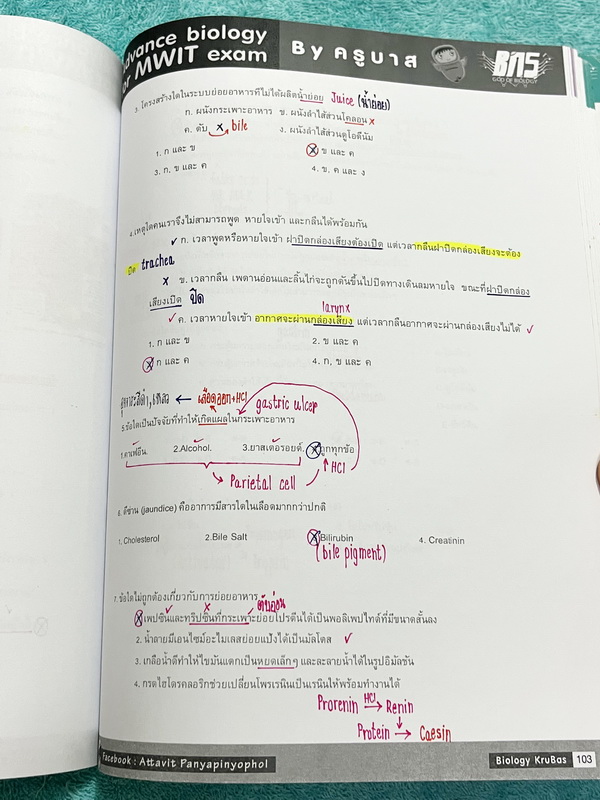 advance biology
for MWIT exam
By ครูบาส
BAS
GOD OF BIOLOGY
3. โครงสร้างใดในระบบย่อยอาหารที่ไม่ได้ผลิตน้ำย่อย Juice (น้ำย่อย)
ก. ผนังกระเพาะอาหาร ข. ผนังลำไส้ส่วนโคลอน x
ค. ตับ x bile ง. ผนังลำไส้ส่วนดูโอดีนัม
1. ก และ ข ข และ ค
3. ก, ข และ ค 4. ข, ค และ ง
4. เหตุใดคนเราจึงไม่สามารถพูด หายใจเข้า และกลืนได้พร้อมกัน
✓ ก. เวลาพูดหรือหายใจเข้า ฝาปิดกล่องเสียงต้องเปิด แต่เวลากลืนฝาปิดกล่องเสียงจะต้อง
ปิด trachea
x ข. เวลากลืน เพดานอ่อนและลิ้นไก่จะถูกดันขึ้นไปปิดทางเดินลมหายใจ ขณะที่ฝาปิดกล่อง
เสียงเปิด ปิด
larynx
✓ ค. เวลาหายใจเข้า อากาศจะผ่านกล่องเสียง แต่เวลากลืนอากาศจะผ่านกล่องเสียงไม่ได้ ✓
1. ก และ ข 2. ข และ ค
ก และ ค 4. ก, ข และ ค
อุจจาระสีดำ, เหลว ← เลือดออก+HCl gastric ulcer
5. ข้อใดเป็นปัจจัยที่ทำให้เกิดแผลในกระเพาะอาหาร
1. คาเฟอีน. 2. Alcohol. 3. ยาสเตอรอยด์. ถูกทุกข้อ
Parietal cell ↑ HCl
6. ดีซ่าน (jaundice) คืออาการมีสารใดในเลือดมากกว่าปกติ
1. Cholesterol 2. Bile Salt Bilirubin 4. Creatinin
(bile pigment)
7. ข้อใดไม่ถูกต้องเกี่ยวกับการย่อยอาหาร ตับอ่อน
เพปซินและทริปซินที่กระเพาะย่อยโปรตีนได้เป็นพอลิเพปไทด์ที่มีขนาดสั้นลง
2. น้ำลายมีเอนไซม์อะไมเลสย่อยแป้งได้เป็นมัลโตส ✓
3. เกลือน้ำดีทำให้ไขมันแตกเป็นหยดเล็กๆ และละลายน้ำได้ในรูปอิมัลชัน
4. กรดไฮโดรคลอริกช่วยเปลี่ยนโพรเรนินเป็นเรนินให้พร้อมทำงานได้
Prorenin HCl → Renin
Protein → Caesin
Facebook : Attavit Panyapinyophol
Biology KruBas 103